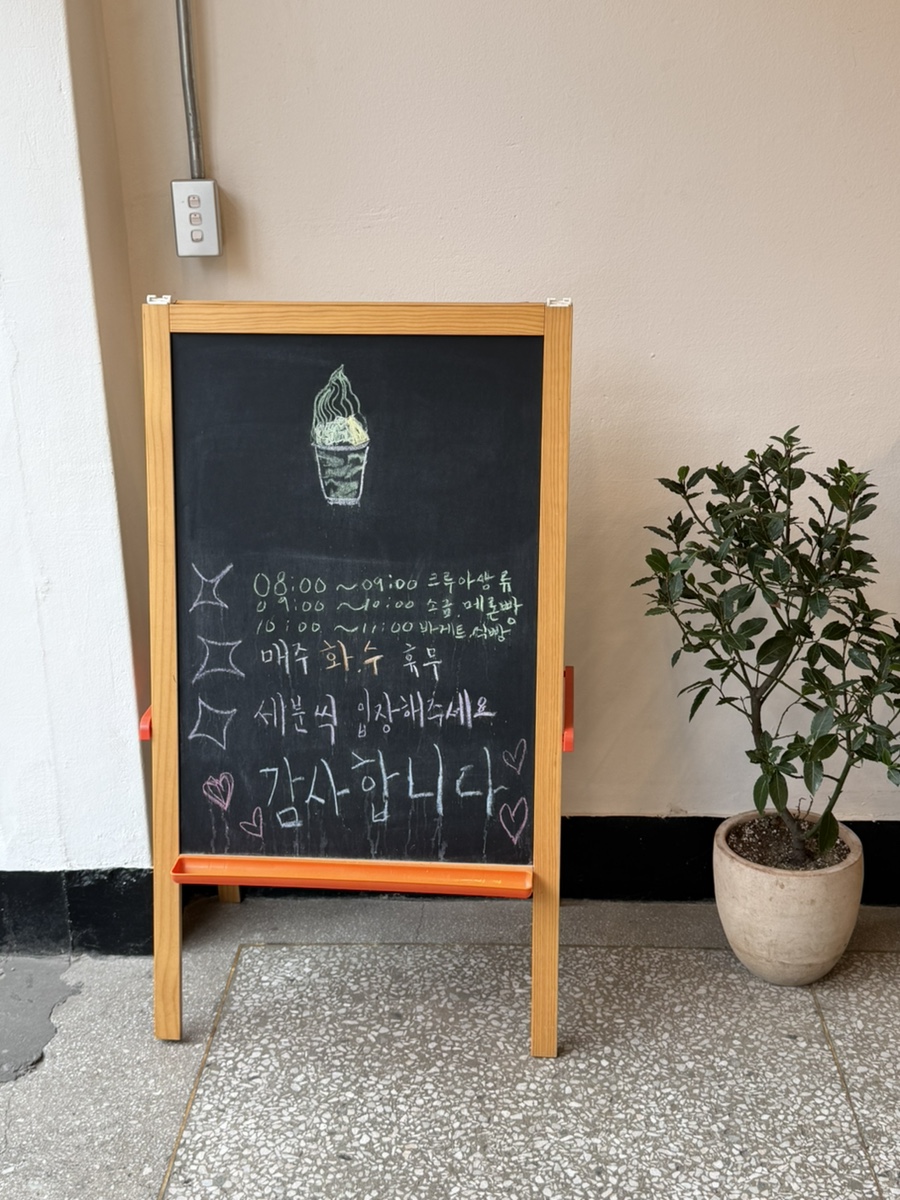 08:00 ~09:00 크루아상류
09:00 ~10:00 소금, 메론빵
10:00 ~11:00 바게트, 식빵
매주 화.수 휴무
세분씩 입장해주세요
감사합니다